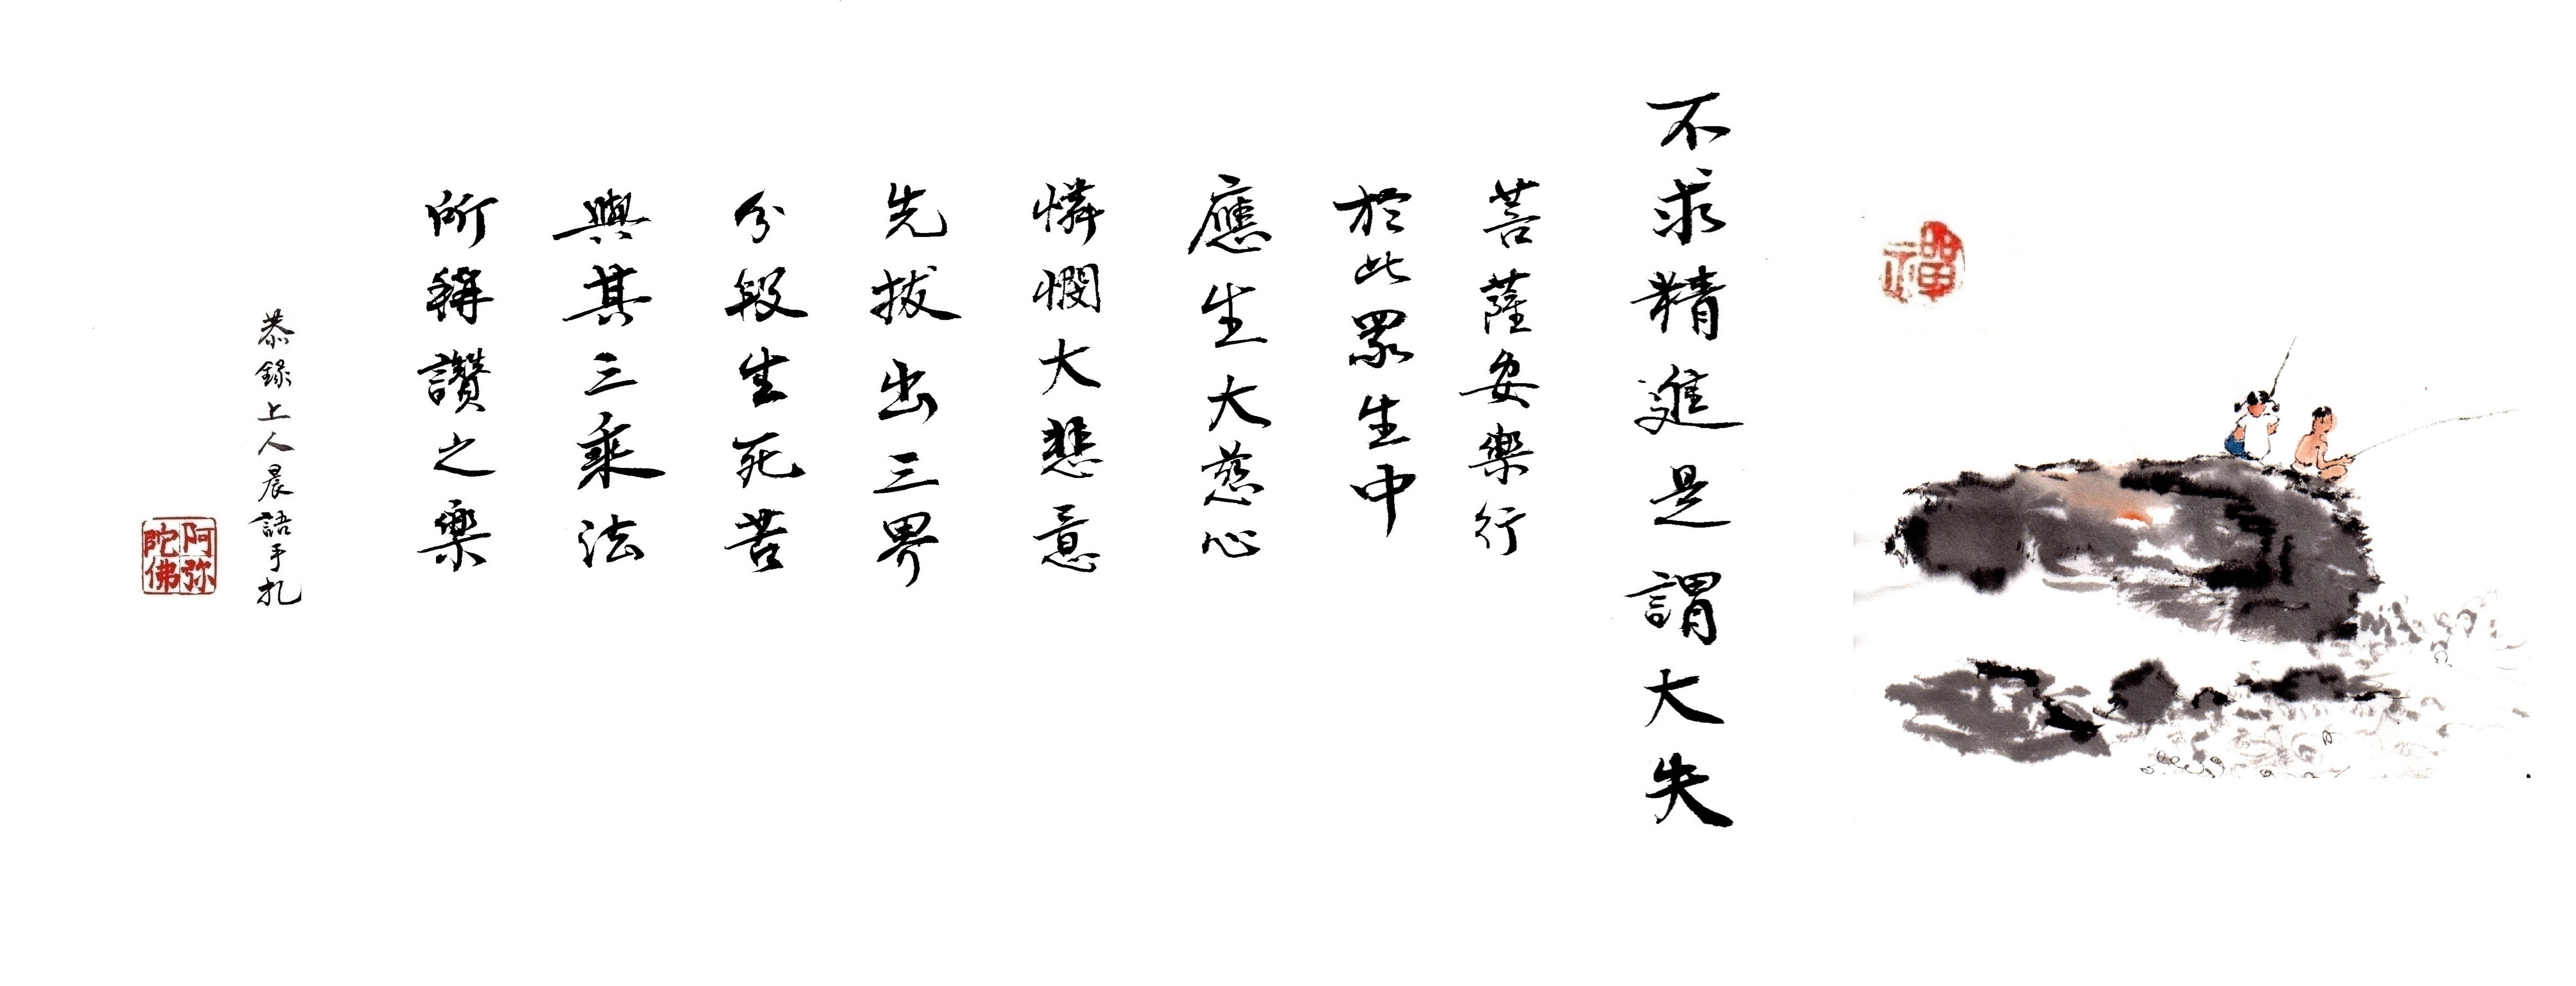 禪
不求精進是謂大失
菩薩安樂行
於此眾生中
應生大慈心
憐憫大悲意
先拔出三界
分段生死苦
與其三乘法
所稱讚之樂
恭錄上人晨語手札
阿弥
陀佛